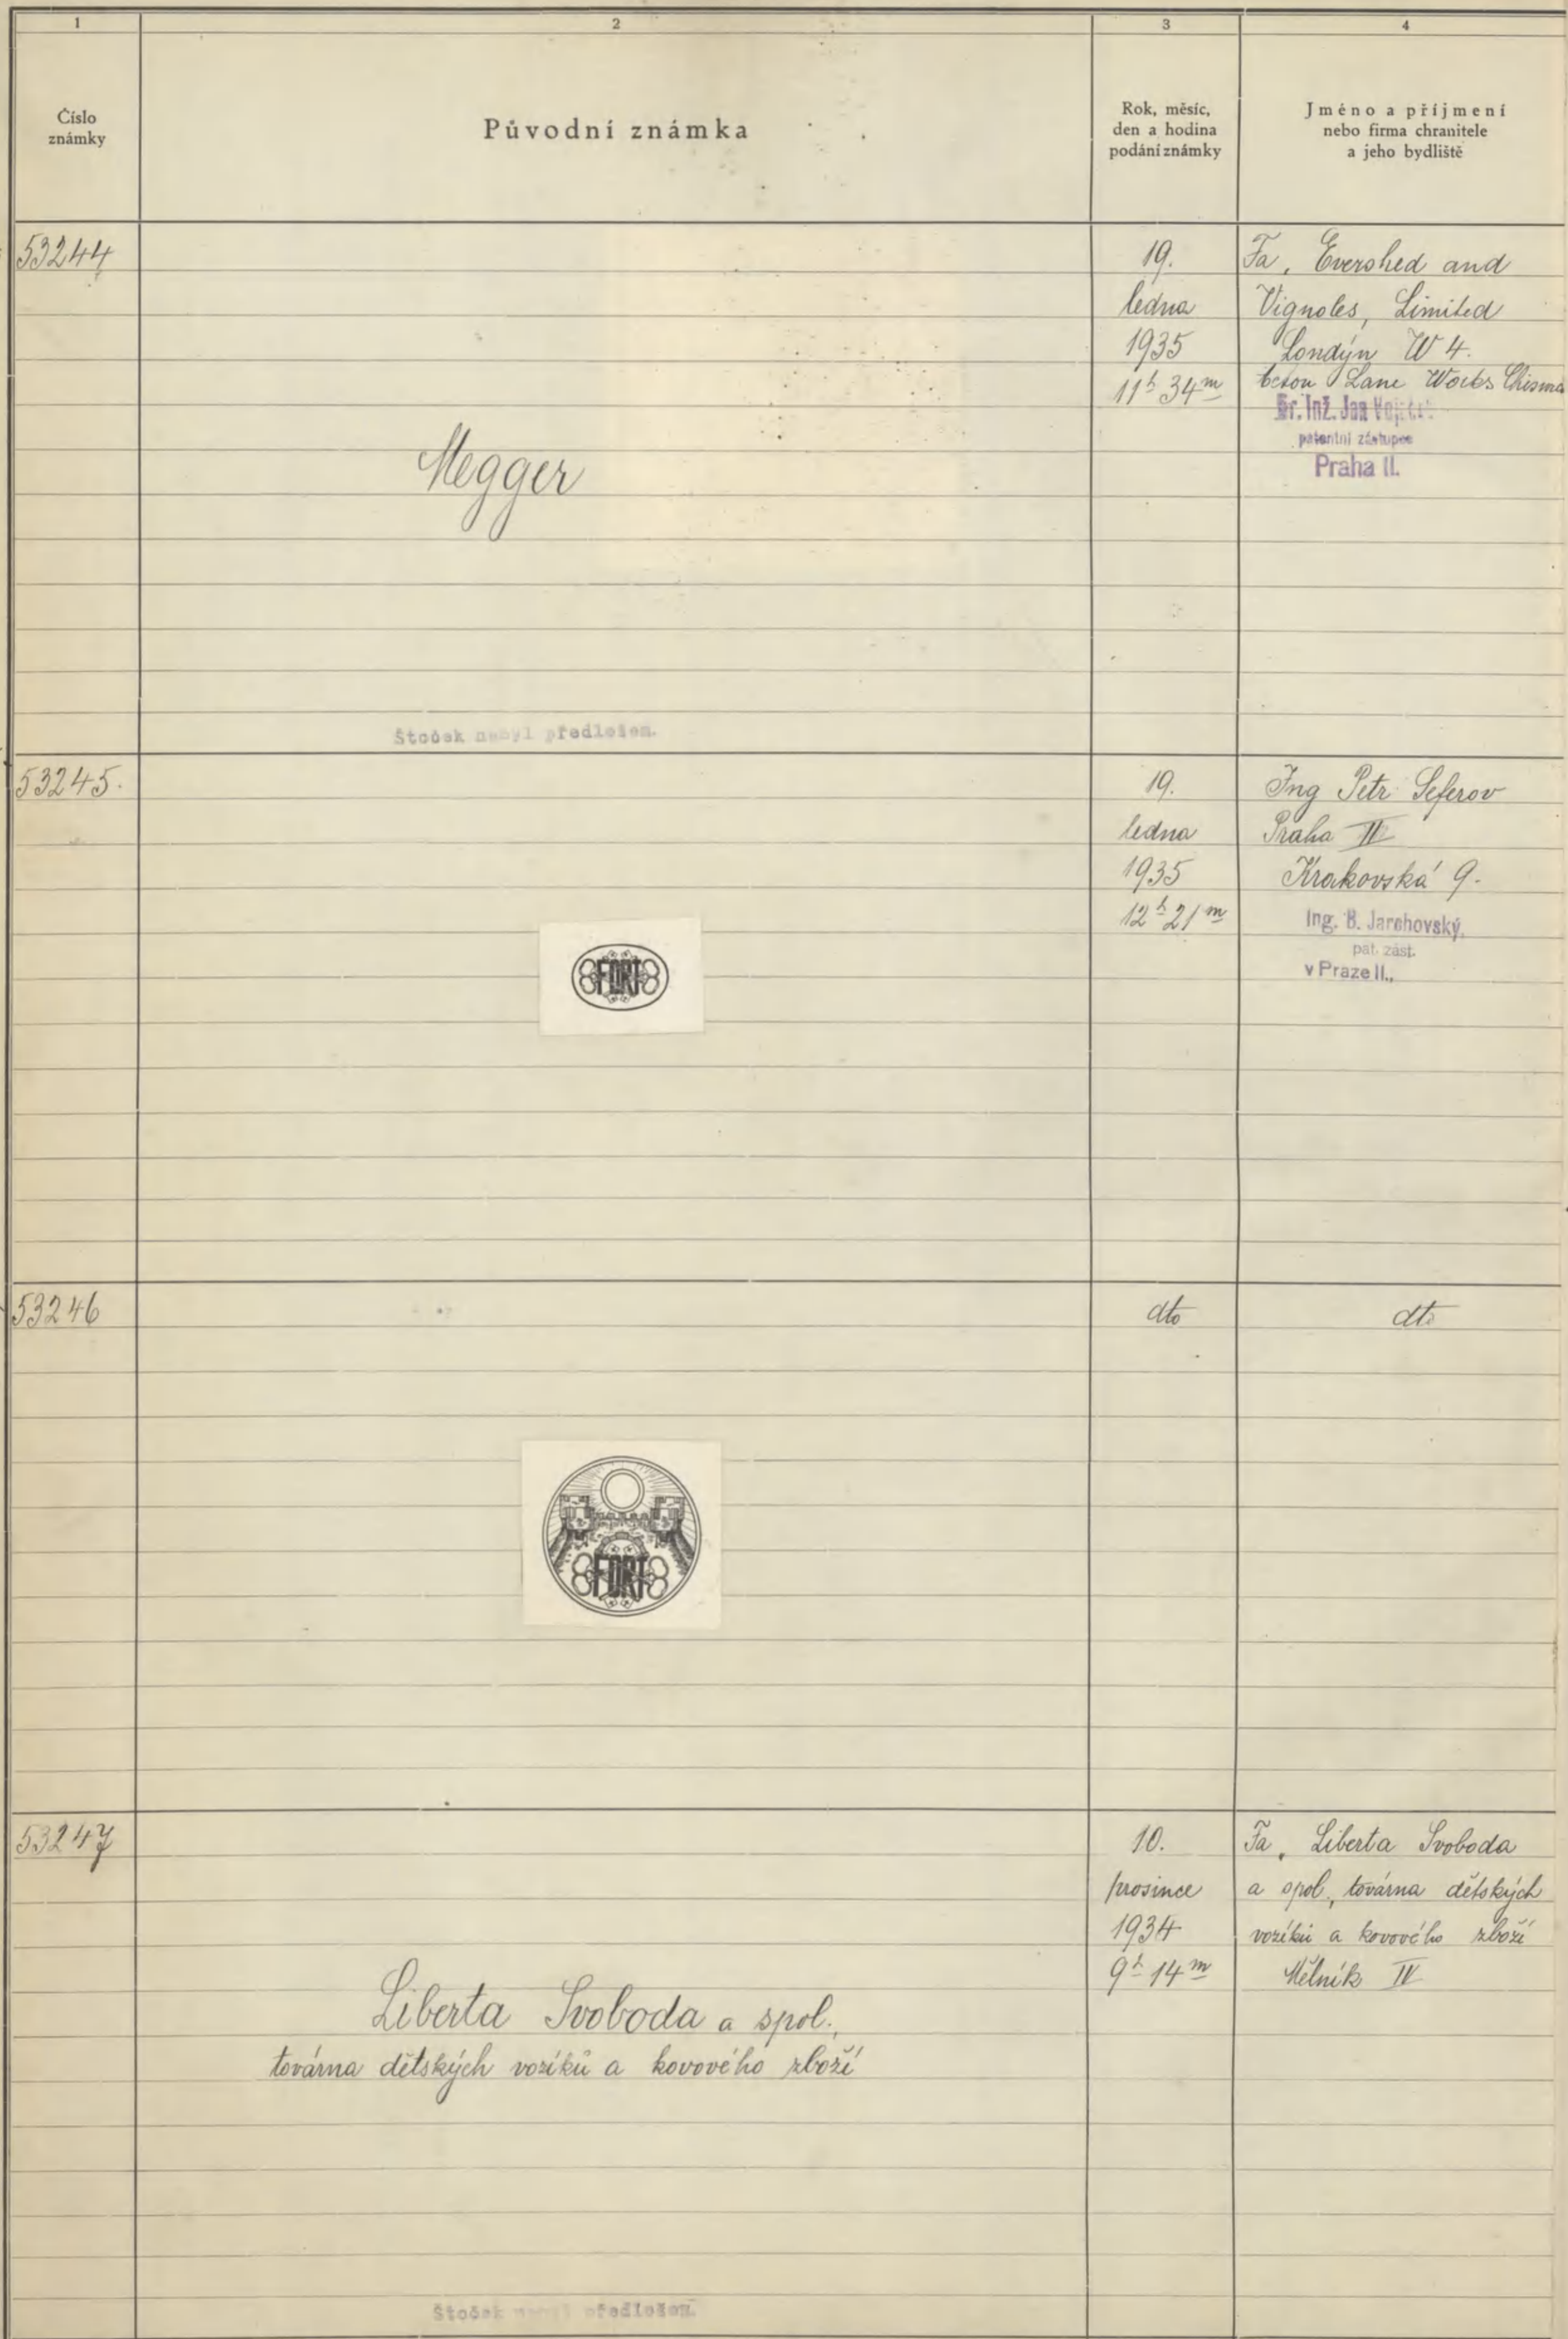 1
2
3
4
Číslo
známky
Původní známka
Rok, měsíc,
den a hodina
podání známky
Jméno a příjmení
nebo firma chranitele
a jeho bydliště
53244
Megger
Štoček nebyl předložen.
19.
ledna
1935
11h 34m
Fa. Evershed and
Vignoles, Limited
Londýn W 4.
Lane Works
Dr. Inž. Jan
patentní zástupce
Praha II.
53245.
FORT
19.
ledna
1935
12h 21m
Ing Petr Seferov
Praha II
Krakovská 9.
Ing. B. Jarchovský,
pat. zást.
v Praze II.,
53246
FORT
dto
dto
53247
Liberta Svoboda a spol.,
továrna dětských vozíků a kovového zboží
Štoček nebyl předložen.
10.
prosince
1934
9h 14m
Fa. Liberta Svoboda
a spol., továrna dětských
vozíků a kovového zboží
Mělník IV